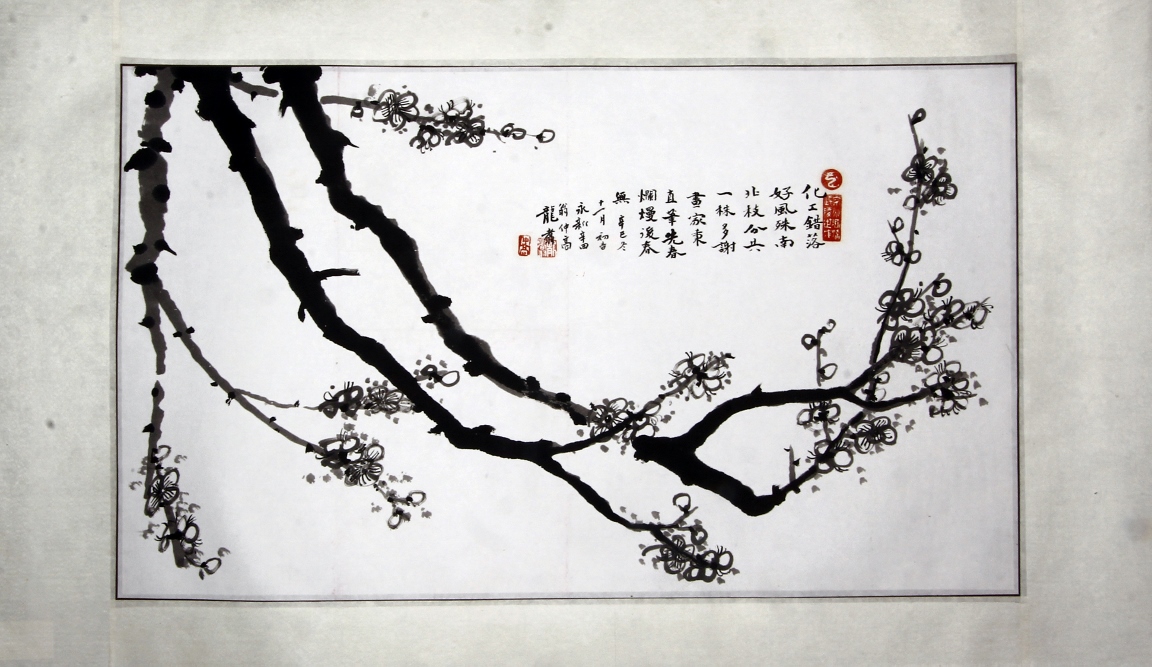 化工錯落
好風殊南
北枝分共
一株多謝
畫家秉
直筆先春
爛熳後春
無 辛巳冬
十一月初吉
永新
翁仲高
龍